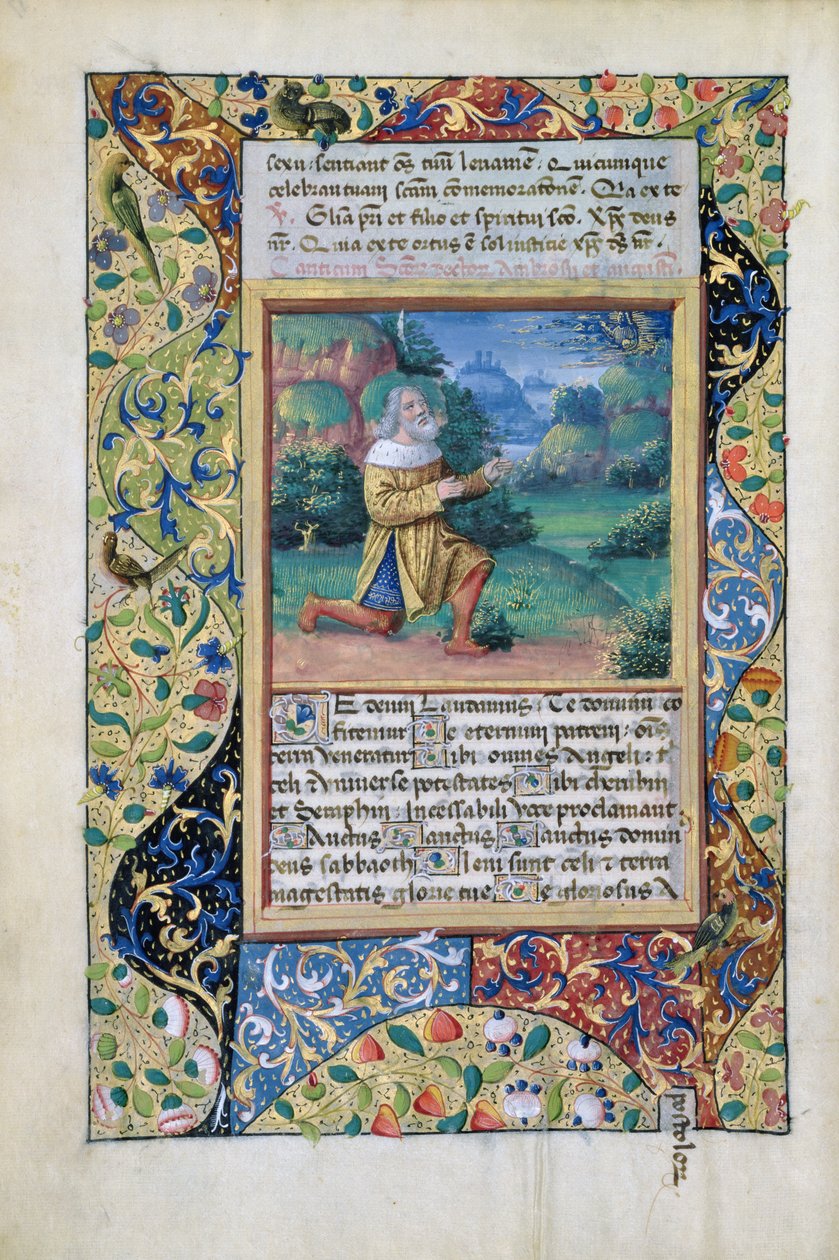 sexu. sentiant oēs tuū levamē. Quicunque
celebrant tuam scām cōmemoratonē. Qa ex te
V. Glīa pri et filio et spiritui sco. Xpc deus
nr. Quia ex te ortus ē sol iusticie xpc ds nr.
Canticum Sctor doctor Ambrosii et augusti.
TE deum Laudamus. Te dominum co
fitemur Te eternum patrem. ois
terra veneratur Tibi omnes Angeli. t
celi & universe potestates Tibi cherubin
et Seraphin. incessabili voce proclamant
Sanctus Sanctus Sanctus domin
deus sabbaoth Pleni sunt celi & terra
magestatis glorie tue Te gloriosus A
postolor